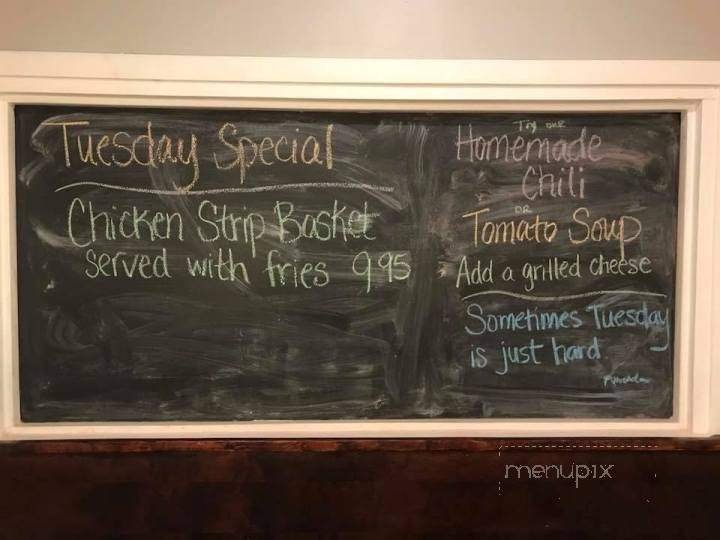 Tuesday Special
Chicken Strip Basket
served with fries 9 95
Try our
Homemade
Chili
OR
Tomato Soup
Add a grilled cheese
Sometimes Tuesday
is just hard
menupix